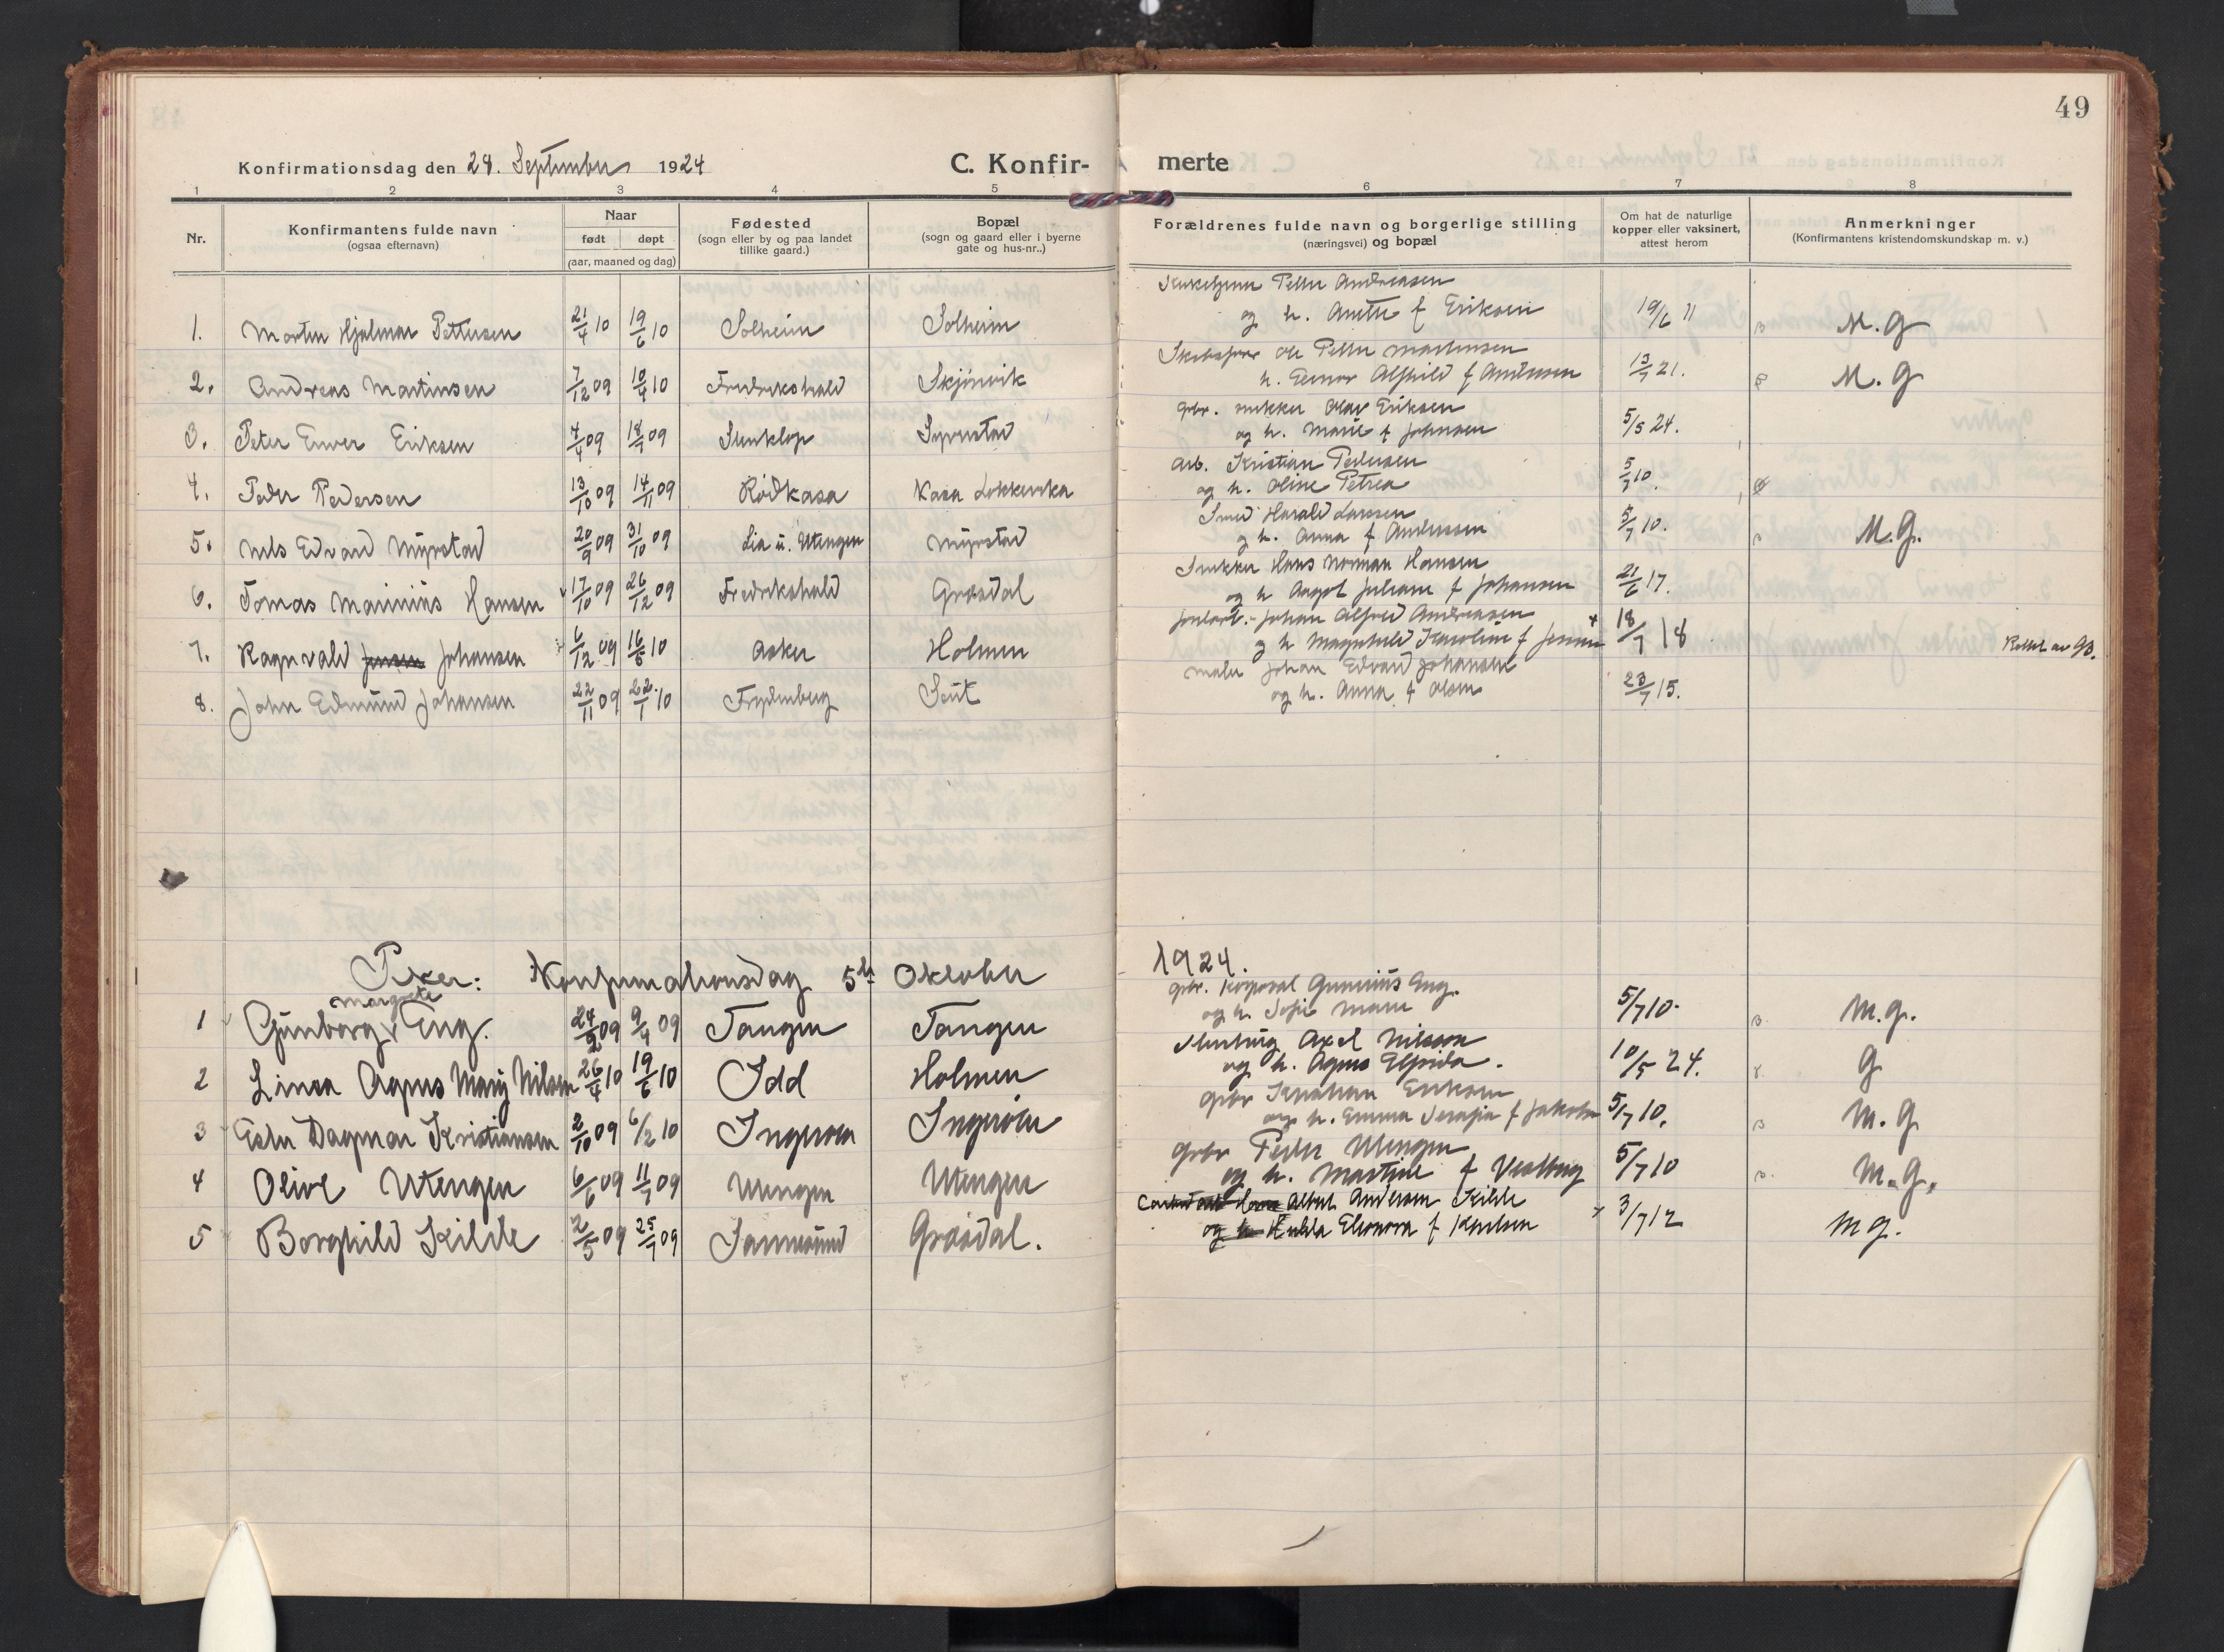 49
Konfirmationsdag den 28. September 1924 C. Konfir- merte
1 2 3 4 5 6 7 8
Nr. Konfirmantens fulde navn (ogsaa efternavn) Naar født døpt (aar, maaned og dag) Fødested (sogn eller by og paa landet tillike gaard.) Bopæl (sogn og gaard eller i byerne gate og hus-nr..) Forældrenes fulde navn og borgerlige stilling (næringsvei) og bopæl Om hat de naturlige kopper eller vaksinert, attest herom Anmerkninger (Konfirmantens kristendomskundskap m. v.)
Petter Andreasen
1. Morten Hjalmar Pettersen 21/4 10 19/6 10 Solheim Solheim og h. Anette f Eriksen 19/6 11 M.G
Ole Petter Martinsen
2. Andreas Martinsen 7/12 09 10/4 10 Fredrikshald Skjónvik h. Alfhild f Andersen 13/7 21. M.G
Gbr. snekker Olav Eriksen
3. Peter Enver Eriksen 4/4 09 18/7 09 og h. Marie f Johnsen 5/5 24.
Arb. Kristian Pedersen
4. Peder Pedersen 13/10 09 14/11 09 Rødkasa Kasa og h. Oline Petrea 5/7 10.
Smed Harald Larssen
5. Nils Edvard Myrstad 20/9 09 31/10 09 Lia u. Utengen Myrstad og h. Anna f Anderssen 5/7 10. M.G.
Snekker Hans Norman Hansen
6. Tomas Marinius Hansen 17/10 09 26/12 09 Fredrikshald Grásdal og h Aagot Juliane f Johansen 21/6 17.
Johan Alfred Andreasen
7. Ragnvald Jensen Johansen 6/12 09 16/5 10 Asker Holmen og h Magnhild Karoline f Jensen 18/7 18 Rettet av 93.
maler Johan Edvard Johansen
8. John Edmund Johansen 22/11 09 22/1 10 Frydenberg Saut og h. Anna f Olsen 23/7 15.
Piker: Konfirmationsdag 5te Oktober 1924.
Margrete
gbr. Korporal Gunerius Eng.
1 Gunborg Eng. 24/2 09 9/4 09 Tangen Tangen og h. Sofie Marie 5/7 10. M.G.
Axel Nilsson
2 Linea Agnes Mary Nilsen 26/4 10 19/6 10 Idd Holmen og h. Agnes Elfrida. 10/5 24. G
Gbr Kristian Eriksen
3 Ester Dagmar Kristiansen 2/10 09 6/2 10 Ingerøen Ingerøen og h. Emma Serafia f Jakobs 5/7 10. M.G
Gbr Peder Utengen
4 Olive Utengen 6/6 09 11/7 09 Utengen Utengen og h. Martine f Vestberg 5/7 10 M.G.
Albert Andersen Kilde
5 Borghild Kilde 2/5 09 25/7 09 Sannesund Grásdal. og h Hulda Eleonora f Knutsen 3/7 12 M G.